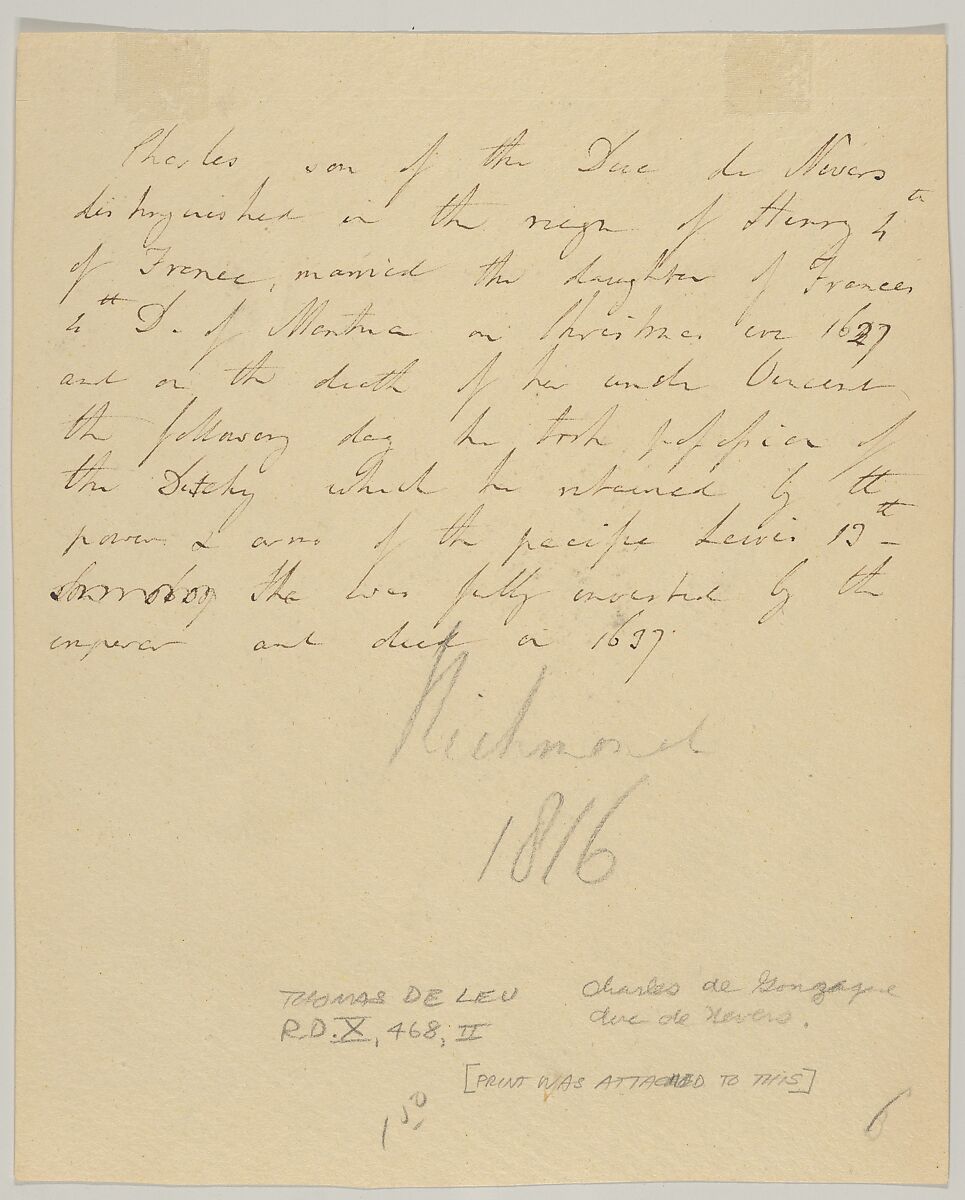 Charles son of the Duc de Nivers
distinguished in the reign of Henry 4th
of France, married the daughter of Frances
4th D. of Mantua on Christmas eve 1627
and on the death of her uncle Vincent
the following day he took possession of
the Dutchy which he retained by the
power & arms of the pacific Lewis 13th -
the was fully invested by the
emperor and died in 1637.
Richmond
1816
THOMAS DE LEU
R.D. X, 468, II
Charles de Gonzague
duc de Nevers.
[PRINT WAS ATTACHED TO THIS]
1.50
6